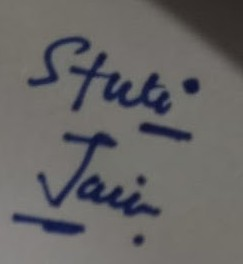 Stuti
Jain